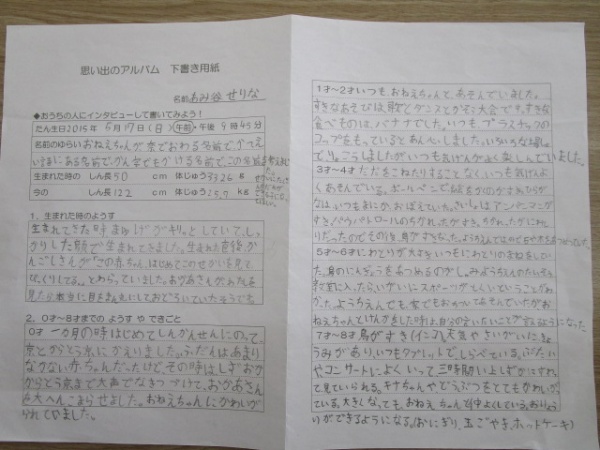 思い出のアルバム 下書き用紙
名前 もみ谷 せりな
◆おうちの人にインタビューして書いてみよう!
たん生日2015年 5月17日(日)(午前・午後 9時45分
名前のゆらい おねえちゃんが
生まれた時の しん長50 cm 体じゅう3326 g
今の しん長122 cm 体じゅう25.7 kg
1、生まれた時のようす
生まれてきた時 まゆげがキリっとしていて、しっ
かりした顔で生まれてきました。生まれた直後、か
んごしさんが「この赤ちゃん、はじめてこのせかいを見て
びっくりしてる。」とわらっていました。おかあさんがあなたを
見たら本当に目をまんまにしておどろいていたそうです。
2、0才~8才までの ようす や できごと
0才 一か月の時はじめてしんかんせんにのって、
京とからとう京にかえいました。ふだんはあまり
なかない赤ちゃんだったけど、その時はしずおか
からとう京まで大声でなきつづけて、おかあさん
を大へんこまらせました。おねえちゃんにかわいが
られていました。
1才~2才 いつも、おねえちゃんと、あそんでいました。
すきなあそびは、歌とダンスと
食べものは、バナナでした。いつも、プラスチックの
コップをもっていると あんしんしました。
いつも元気よく楽しんでいました。
3才~4才 だだをこねたりすることなく、いつも気げんよ
くあそんでいる。ボールペンで絵をかくのがすき。ひらが
なは、いつもまにか、おぼえていた。さいしょは アンパーマンが
すき、パウパトロールの
りだったのでその後、
5才~6才 にわとりが大すきでいつもにわとりのまねをしてい
た。身のにんぎょうをあつめるのがしゅみ。ようちえんのたいそう
教室に入ったらいがいにスポーツがとくいということがわ
かった。ようちえんでも家でもおだやかであそんでいたがお
ねえちゃんとけんかをした時は、自分の言いたいことが言えるようになった
7才~8才 鳥がすき(インコ)、天気やよいがいにきょ
うみがあり、いつもタブレットでしらべている。ぶたい
やコンサートによく いって 三時間い上しずかにすわっ
て見ていられる。キナちゃんやどうぶつをとてもかわいがっ
ている。大きくなっても、おねえちゃんと中よくしている。おりょう
いができるようになる。(おにぎり、玉ごやき、ホットケーキ)